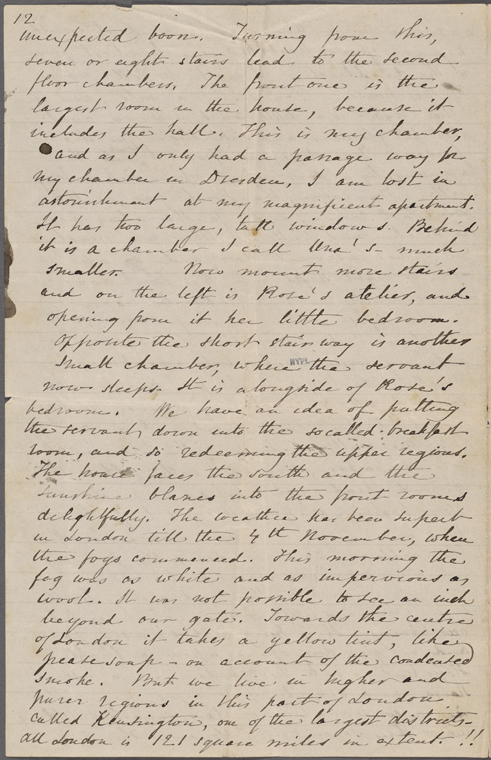 12
unexpected boon. Turning from this,
seven or eight stairs lead to the second
floor chambers. The front one is the
largest room in the house, because it
includes the hall. This is my chamber,
and as I only had a passage way for
my chamber in Dresden, I am lost in
astonishment at my magnificent apartment.
It has two large, tall windows. Behind
it is a chamber I call Una's - much
smaller. Now mount more stairs
and on the left is Rose's atelier, and
opening from it her little bedroom.
Opposite the short stairway is another
small chamber, where the servant
NYPL
now sleeps. It is alongside of Rose's
bedroom. We have an idea of putting
the servant down into the so called breakfast
room, and so redeeming the upper regions.
The house faces the south and the
sunshine blazes into the front rooms
delightfully. The weather has been superb
in London till the 4th November, when
the fogs commenced. This morning the
fog was as white and as impervious as
wool. It was not possible to see an inch
beyond our gate. Towards the centre
of London it takes a yellow tint, like
pease soup - on account of the condensed
smoke. But we live in higher and
purer regions in this part of London
called Kensington, one of the largest districts -
All London is 121 square miles in extent. !!